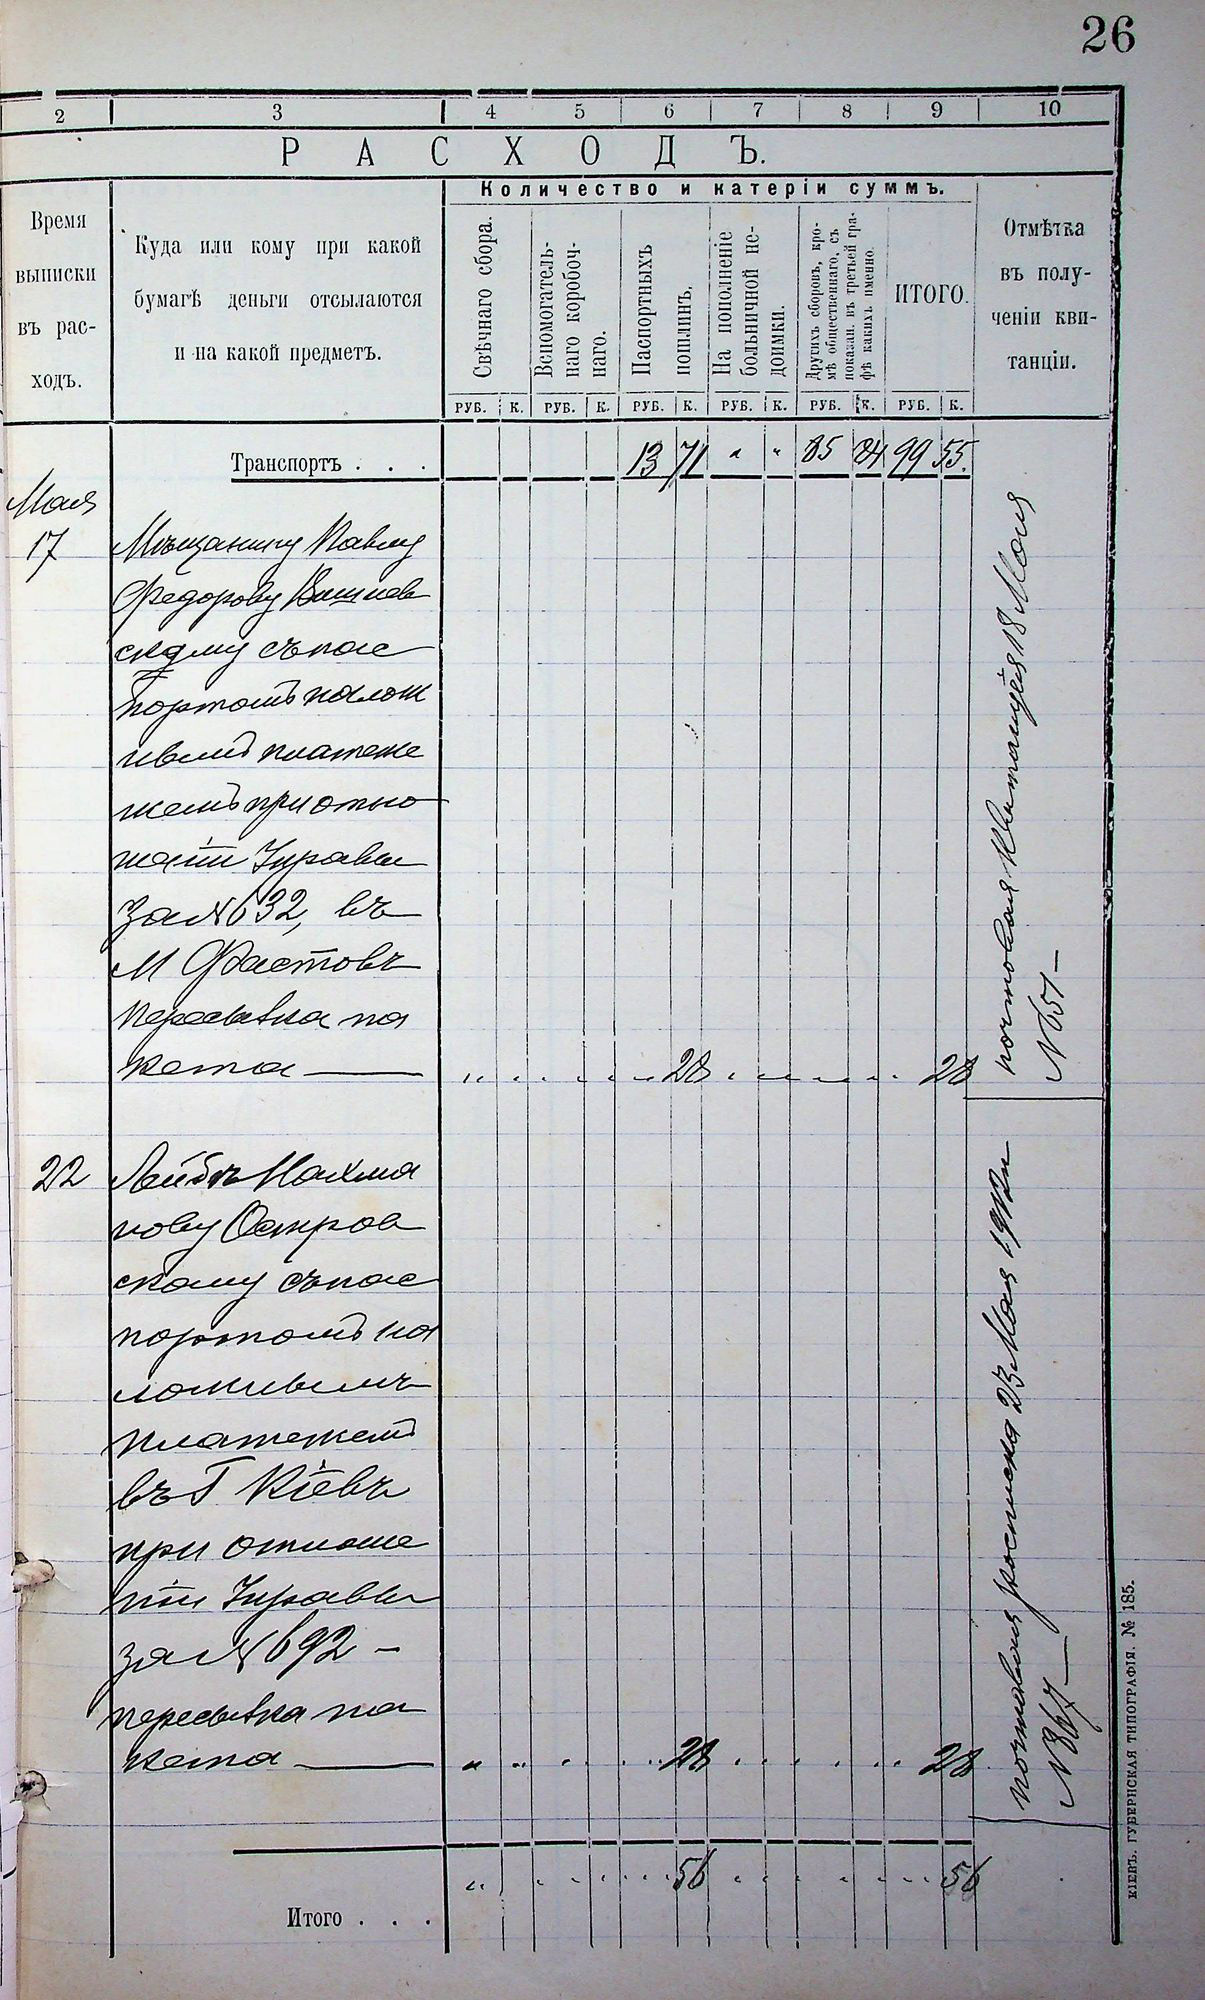 26
2 3 4 5 6 7 8 9 10
РАСХОДЪ.
Количество и катеріи суммъ.
Время
выписки
въ рас-
ходъ.
Куда или кому при какой
бумагѣ деньги отсылаются
и на какой предметъ.
Свѣчнаго сбора.
Вспомогатель-
наго коробоч-
наго.
Паспортныхъ
пошлинъ.
На пополненіе
больничной не-
доимки.
Другихъ сборовъ, кро-
мѣ общественнаго, съ
показан. въ третьей гра-
фѣ какихъ именно.
ИТОГО.
Отмѣтка
въ полу-
ченіи кви-
танціи.
РУБ. К. РУБ. К. РУБ. К. РУБ. К. РУБ. К. РУБ. К.
Транспортъ . . . 13 71 " " 85 84 99 55.
Мая
17
Мѣщанину Павлу
Федорову Вишнев
скому съ пас
портомъ налож
нымъ платеже
жемъ при отно
шеніи Управы
за № 632, въ
м Фастовъ
пересылка па
кета — 28 28
почтовая квитанція 18 Мая
№ 651 —
22
Лейбѣ Нахма
нову Остров
скому съ пас
портомъ на
ложнымъ
платежемъ
въ г Кіевъ
при отноше
ніи Управы
за № 692 —
пересылка па
кета — 28 28
почтовая росписка 23 Мая
№ 867 —
56 56
Итого . . .
КІЕВЪ. ГУБЕРНСКАЯ ТИПОГРАФІЯ. № 185.